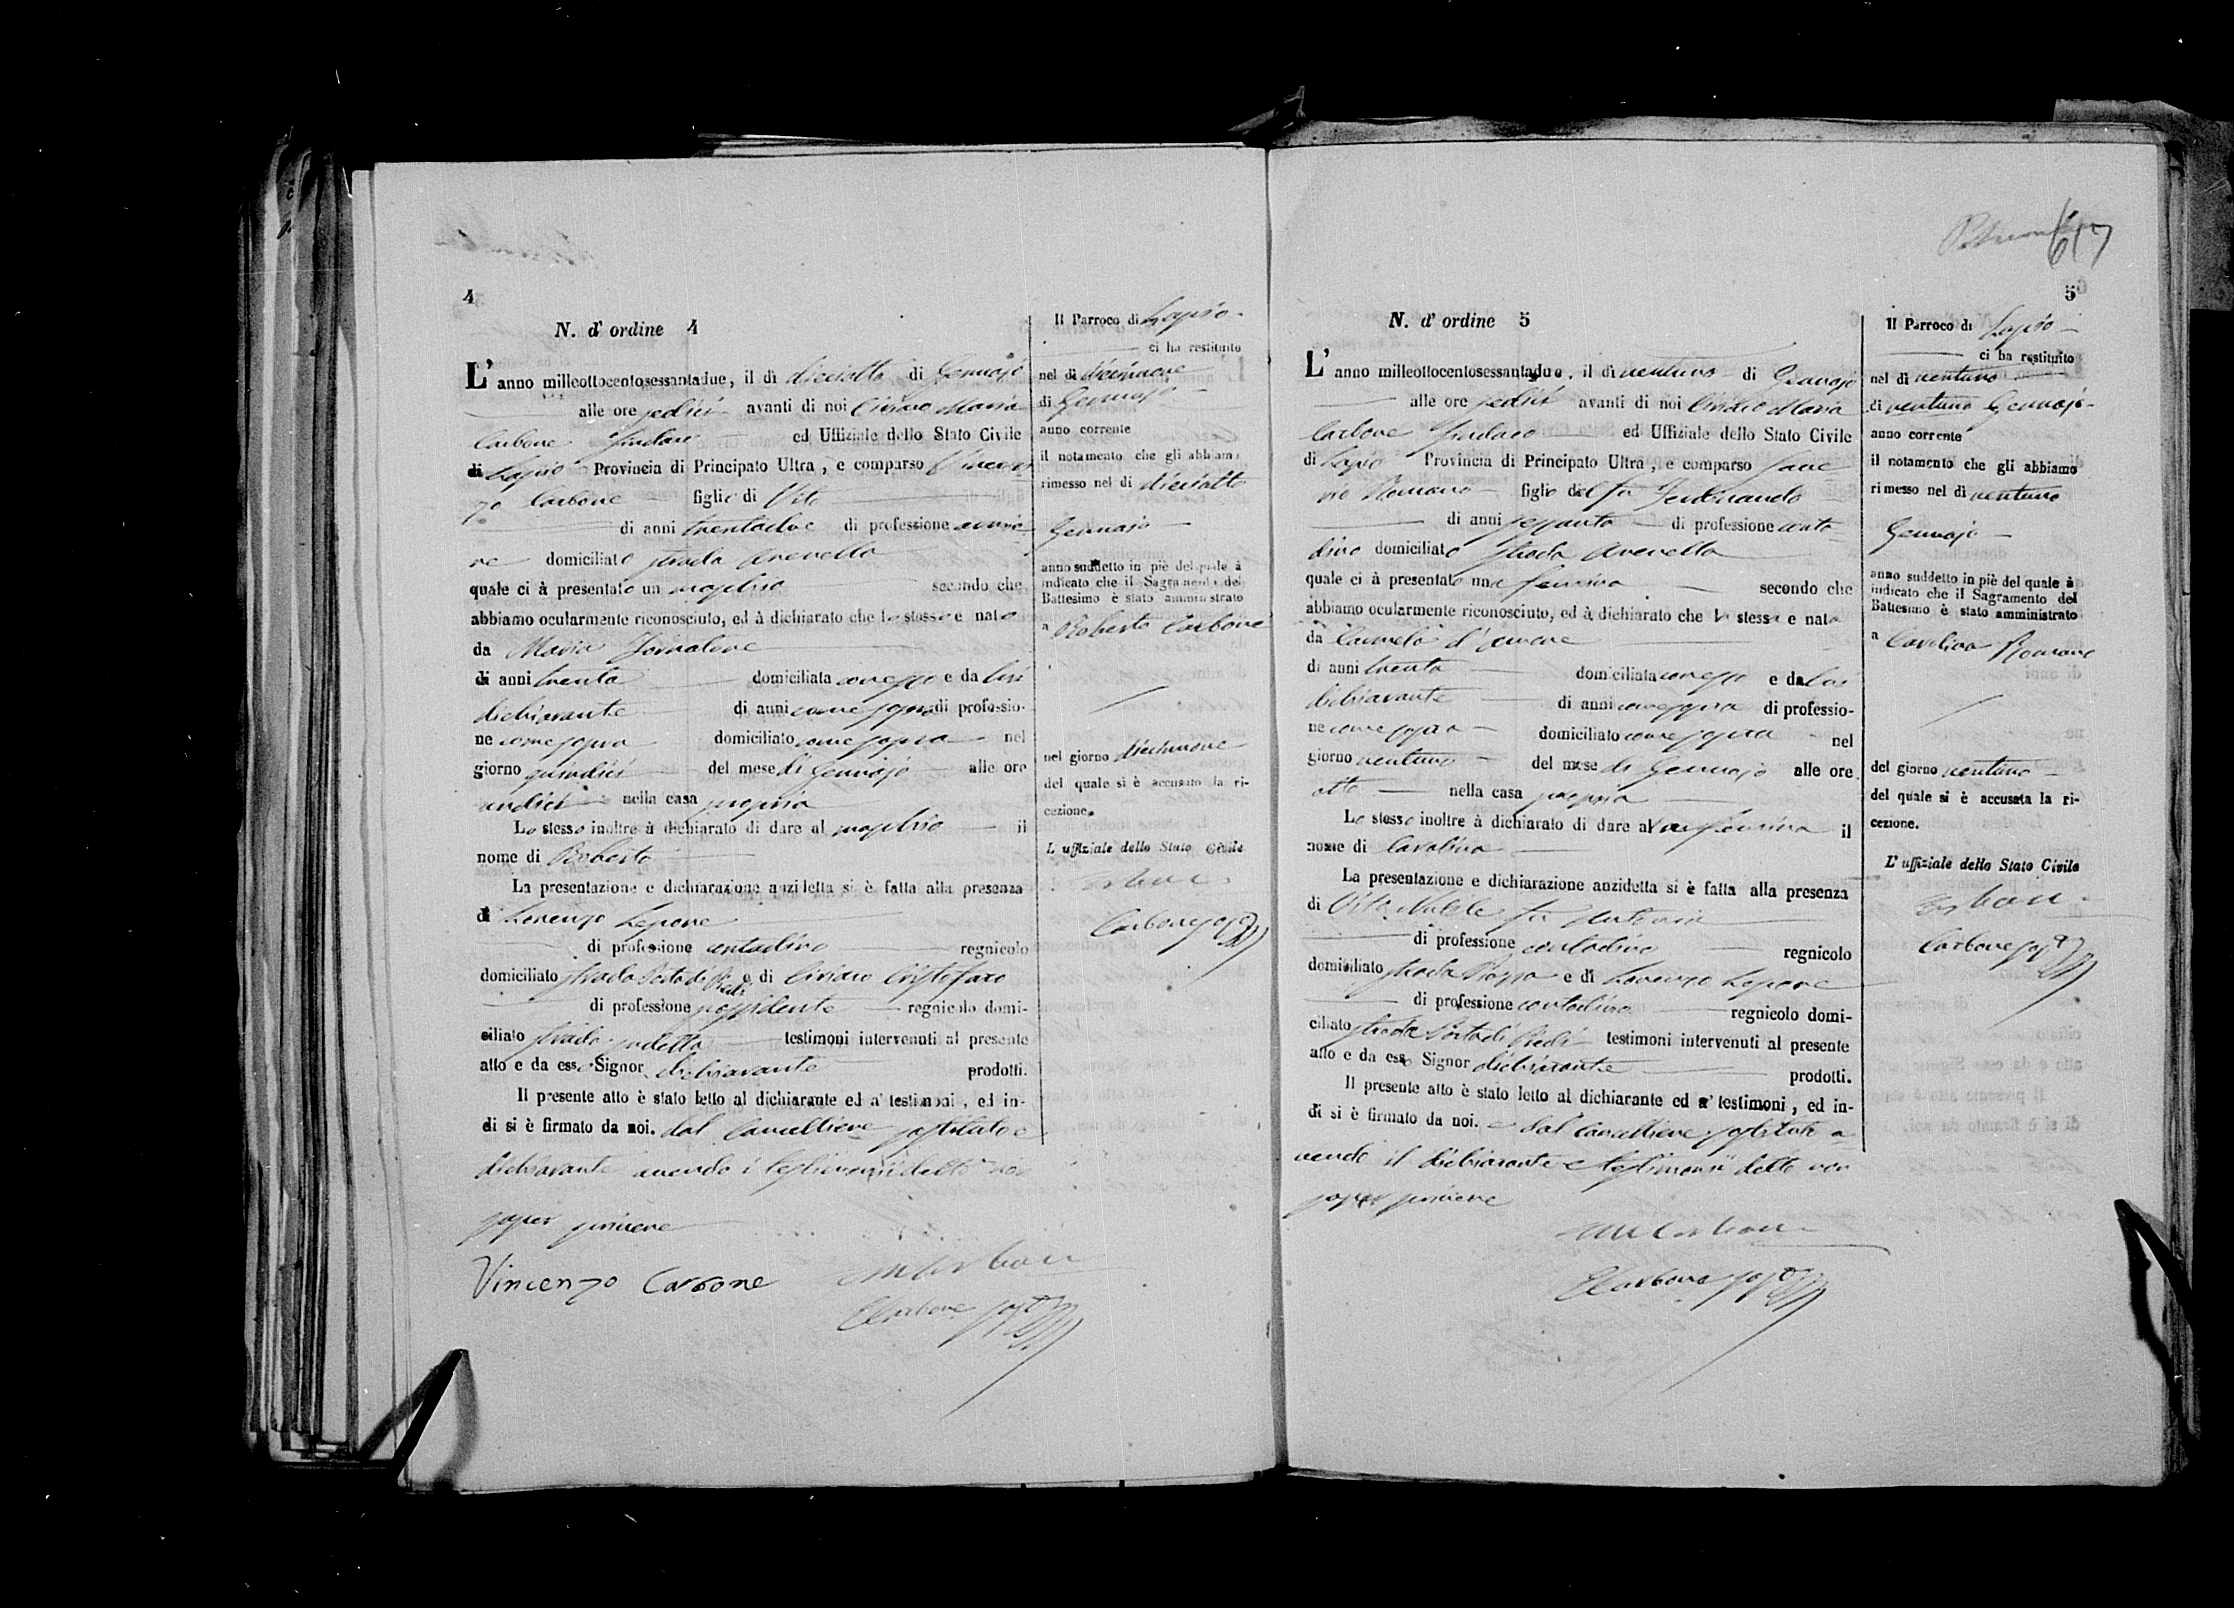 4
N. d' ordine 4
L' anno milleottocentosessantadue, il dì dieciotto di Gennajo
alle ore sedici avanti di noi Ciriaco Maria
Carbone Sindaco ed Uffiziale dello Stato Civile
di Lapio Provincia di Principato Ultra, e comparso Vincen
zo Carbone figlio di Vito
di anni trentadue di professione
re domiciliato strada Arenella
quale ci à presentato un maschio secondo che
abbiamo ocularmente riconosciuto, ed à dichiarato che lo stesso e nato
da Maria
di anni trenta domiciliata come sopra e da lui
dichiarante di anni come sopra di professio-
ne come sopra domiciliato come sopra nel
giorno quindici del mese di Gennajo alle ore
undici nella casa propria
Lo stesso inoltre à dichiarato di dare al maschio il
nome di Roberto
La presentazione e dichiarazione anzidetta si è fatta alla presenza
di Lorenzo Lepore
di professione contadino regnicolo
domiciliato strada Porta di Piedi e di Ciriaco Cristofaro
di professione possidente regnicolo domi-
ciliato strada sudetta testimoni intervenuti al presente
atto e da esso Signor dichiarante prodotti.
Il presente atto è stato letto al dichiarante ed a' testimoni, ed in-
di si è firmato da noi. dal Cancelliere sostituto e
dichiarante avendo i testimonii detto non
saper scrivere
Vincenzo Carbone
Carbone sosto
Il Parroco di Lapio
ci ha restituito
nel dì diecinove
di Gennajo
anno corrente
il notamento che gli abbiamo
rimesso nel di dieciotto
Gennajo
anno suddetto in piè del quale à
indicato che il Sagramento del
Battesimo è stato amministrato
a Roberto Carbone
nel giorno diecinove
del quale si è accusato la ri-
cezione.
L' uffiziale dello Stato Civile
Carbone sosto
617
5
N. d' ordine 5
L' anno milleottocentosessantadue, il di ventuno di Gennajo
alle ore sedici avanti di noi Ciriaco Maria
Carbone Sindaco ed Uffiziale dello Stato Civile
di Lapio Provincia di Principato Ultra, e comparso Save
rio Romano figlio del fu Ferdinando
di anni sessanta di professione conta
dino domiciliato strada Arenella
quale ci à presentato una femina secondo che
abbiamo ocularmente riconosciuto, ed à dichiarato che la stessa e nata
da Carmela d'Amore
di anni trenta domiciliata come sopra e da lui
dichiarante di anni come sopra di professio-
ne come sopra domiciliato come sopra nel
giorno ventuno del mese di Gennajo alle ore
otto nella casa propria
Lo stesso inoltre à dichiarato di dare alla femina il
nome di Carolina
La presentazione e dichiarazione anzidetta si è fatta alla presenza
di Vito Natale fu
di professione contadino regnicolo
domiciliato strada Piazza e di Lorenzo Lepore
di professione contadino regnicolo domi-
ciliato strada Porta di Piedi testimoni intervenuti al presente
atto e da esso Signor dichiarante prodotti.
Il presente atto è stato letto al dichiarante ed a' testimoni, ed in-
di si è firmato da noi. e dal Cancelliere sostituto a
vendo il dichiarante e testimonii detto non
saper scrivere
Carbone sosto
Il Parroco di Lapio
ci ha restituito
nel dì ventuno
di ventuno Gennajo
anno corrente
il notamento che gli abbiamo
rimesso nel dì ventuno
Gennajo
anno suddetto in piè del quale à
indicato che il Sagramento del
Battesimo è stato amministrato
a Carolina Romano
del giorno ventuno
del quale si è accusata la ri-
cezione.
L' uffiziale dello Stato Civile
Carbone sosto